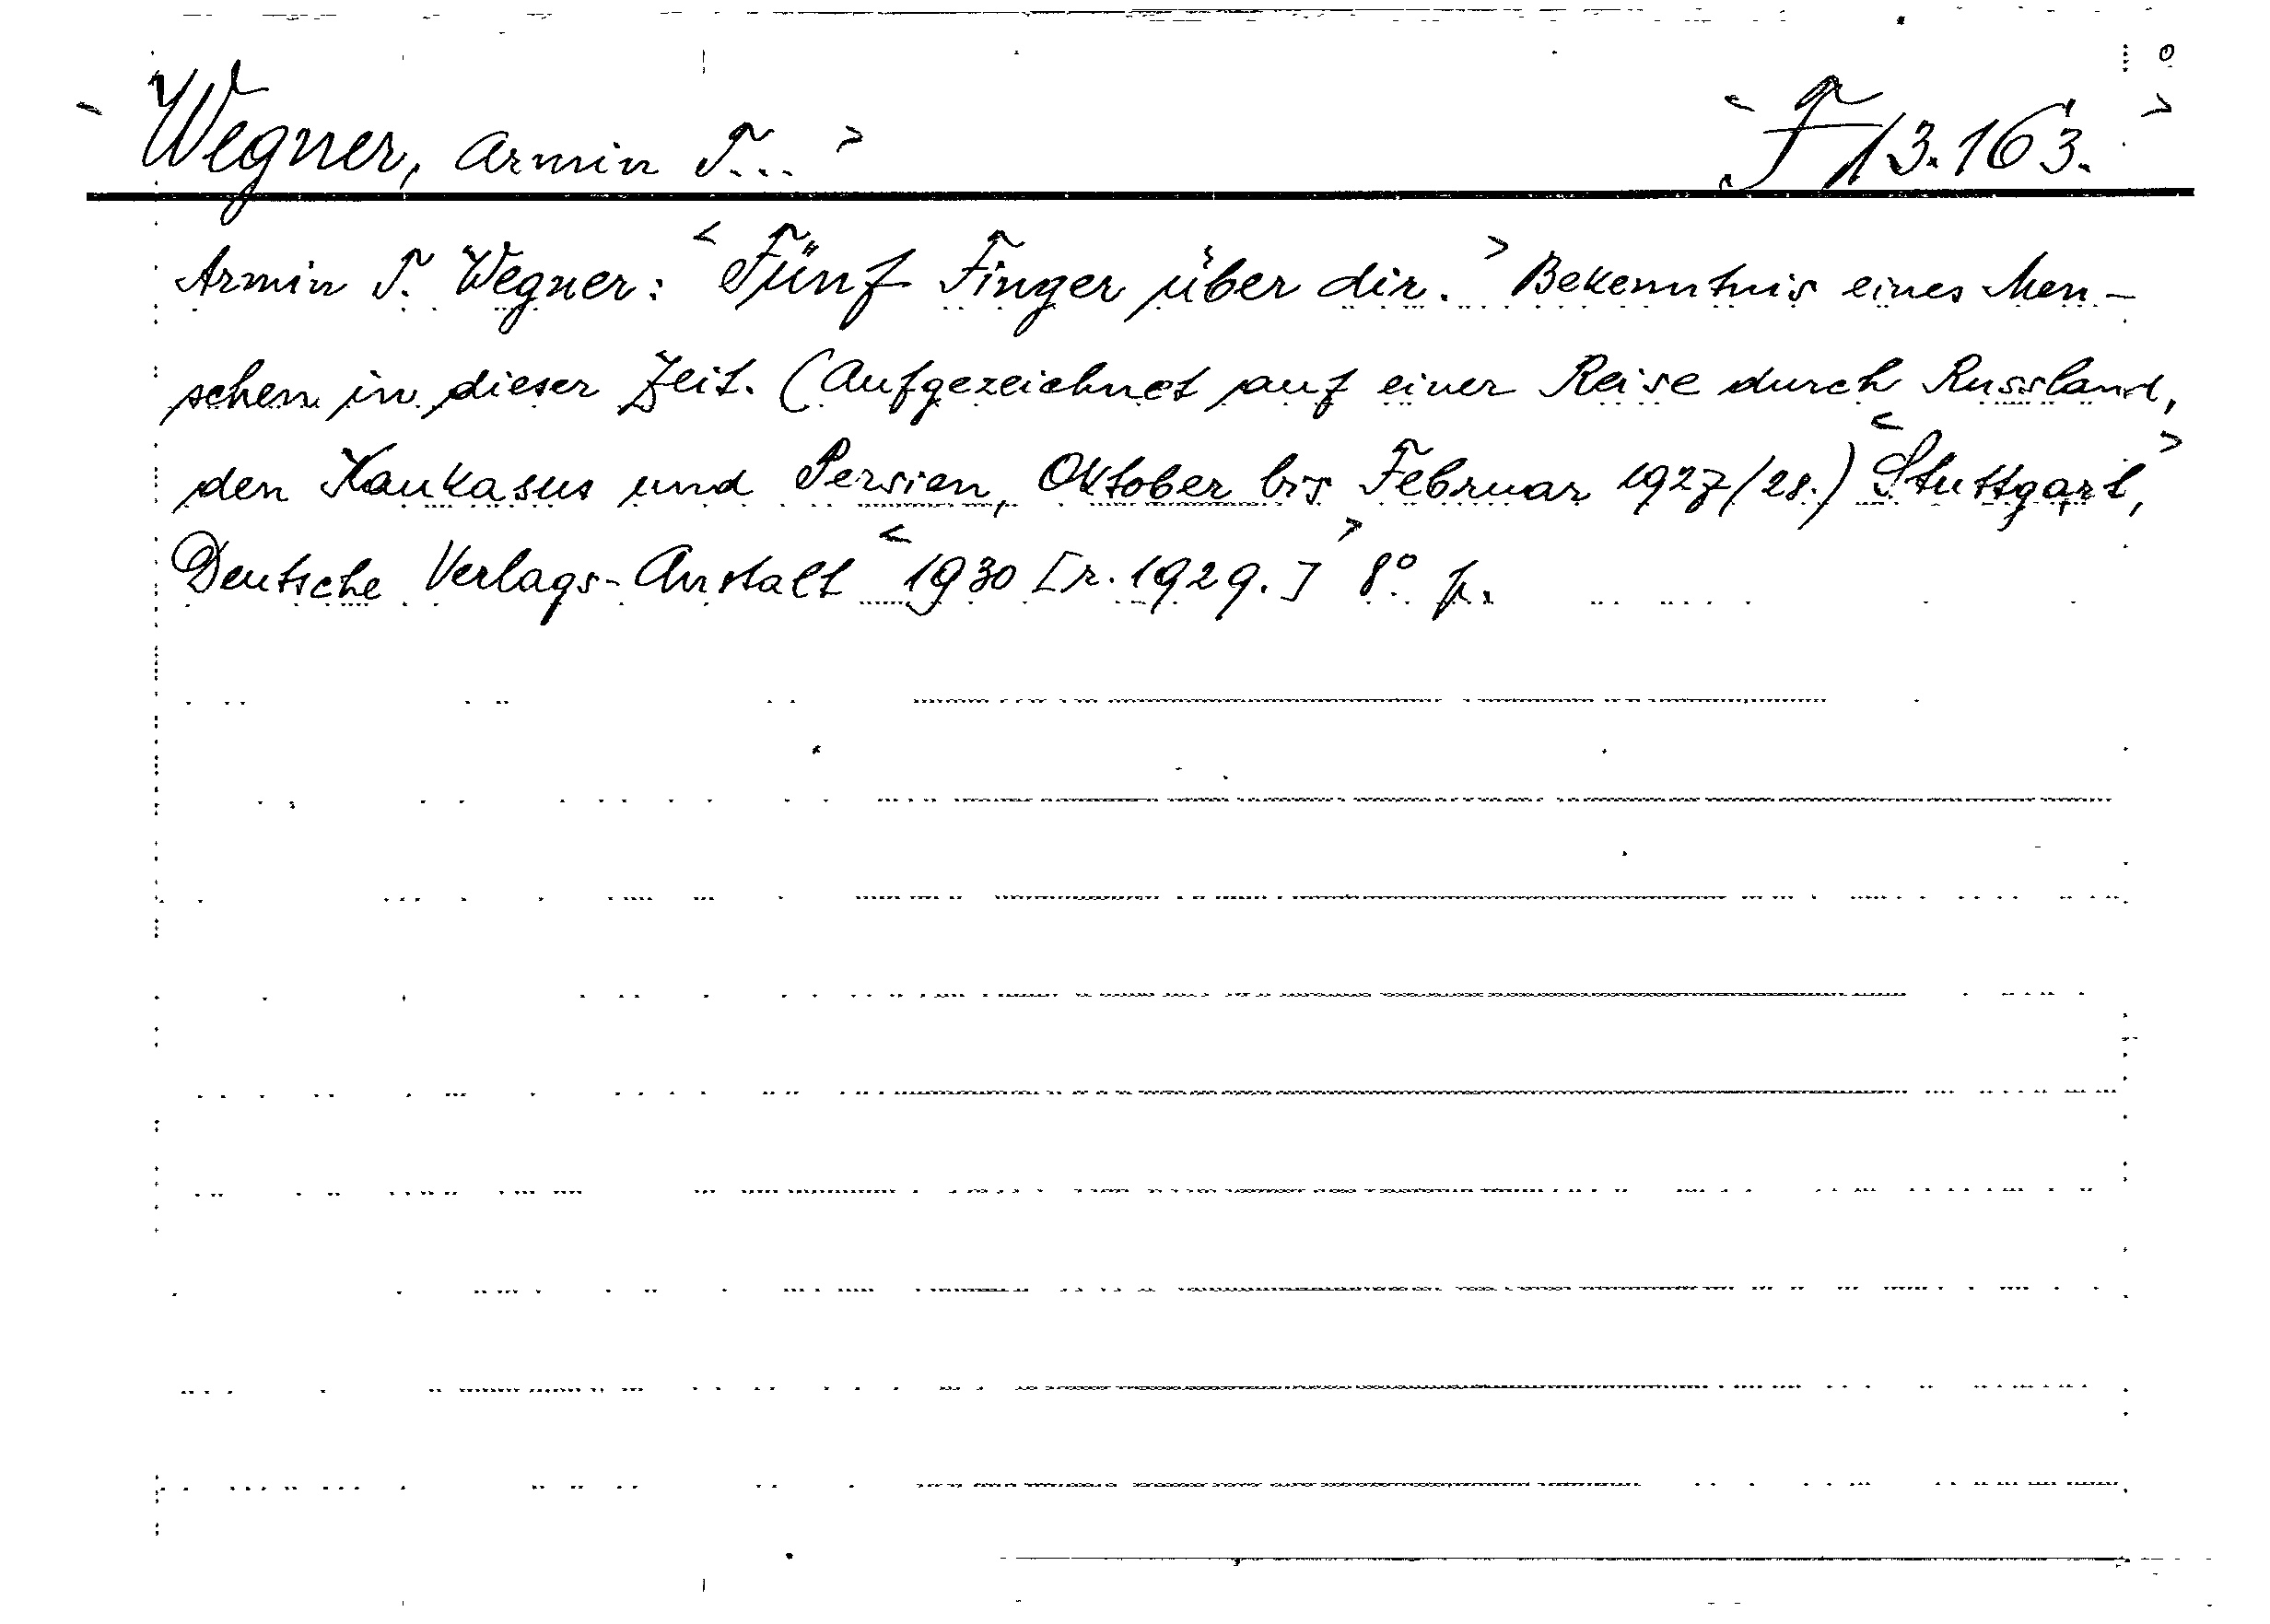 Wegner, Armin T... F 13.163.
Armin T. Wegner: Fünf Finger über dir. Bekenntnis eines Men-
schen in dieser Zeit. (Aufgezeichnet auf einer Reise durch Russland,
den Kaukasus und Persien, Oktober bis Februar 1927/28.) Stuttgart,
Deutsche Verlags-Anstalt 1930 [r. 1929.] 8° p.